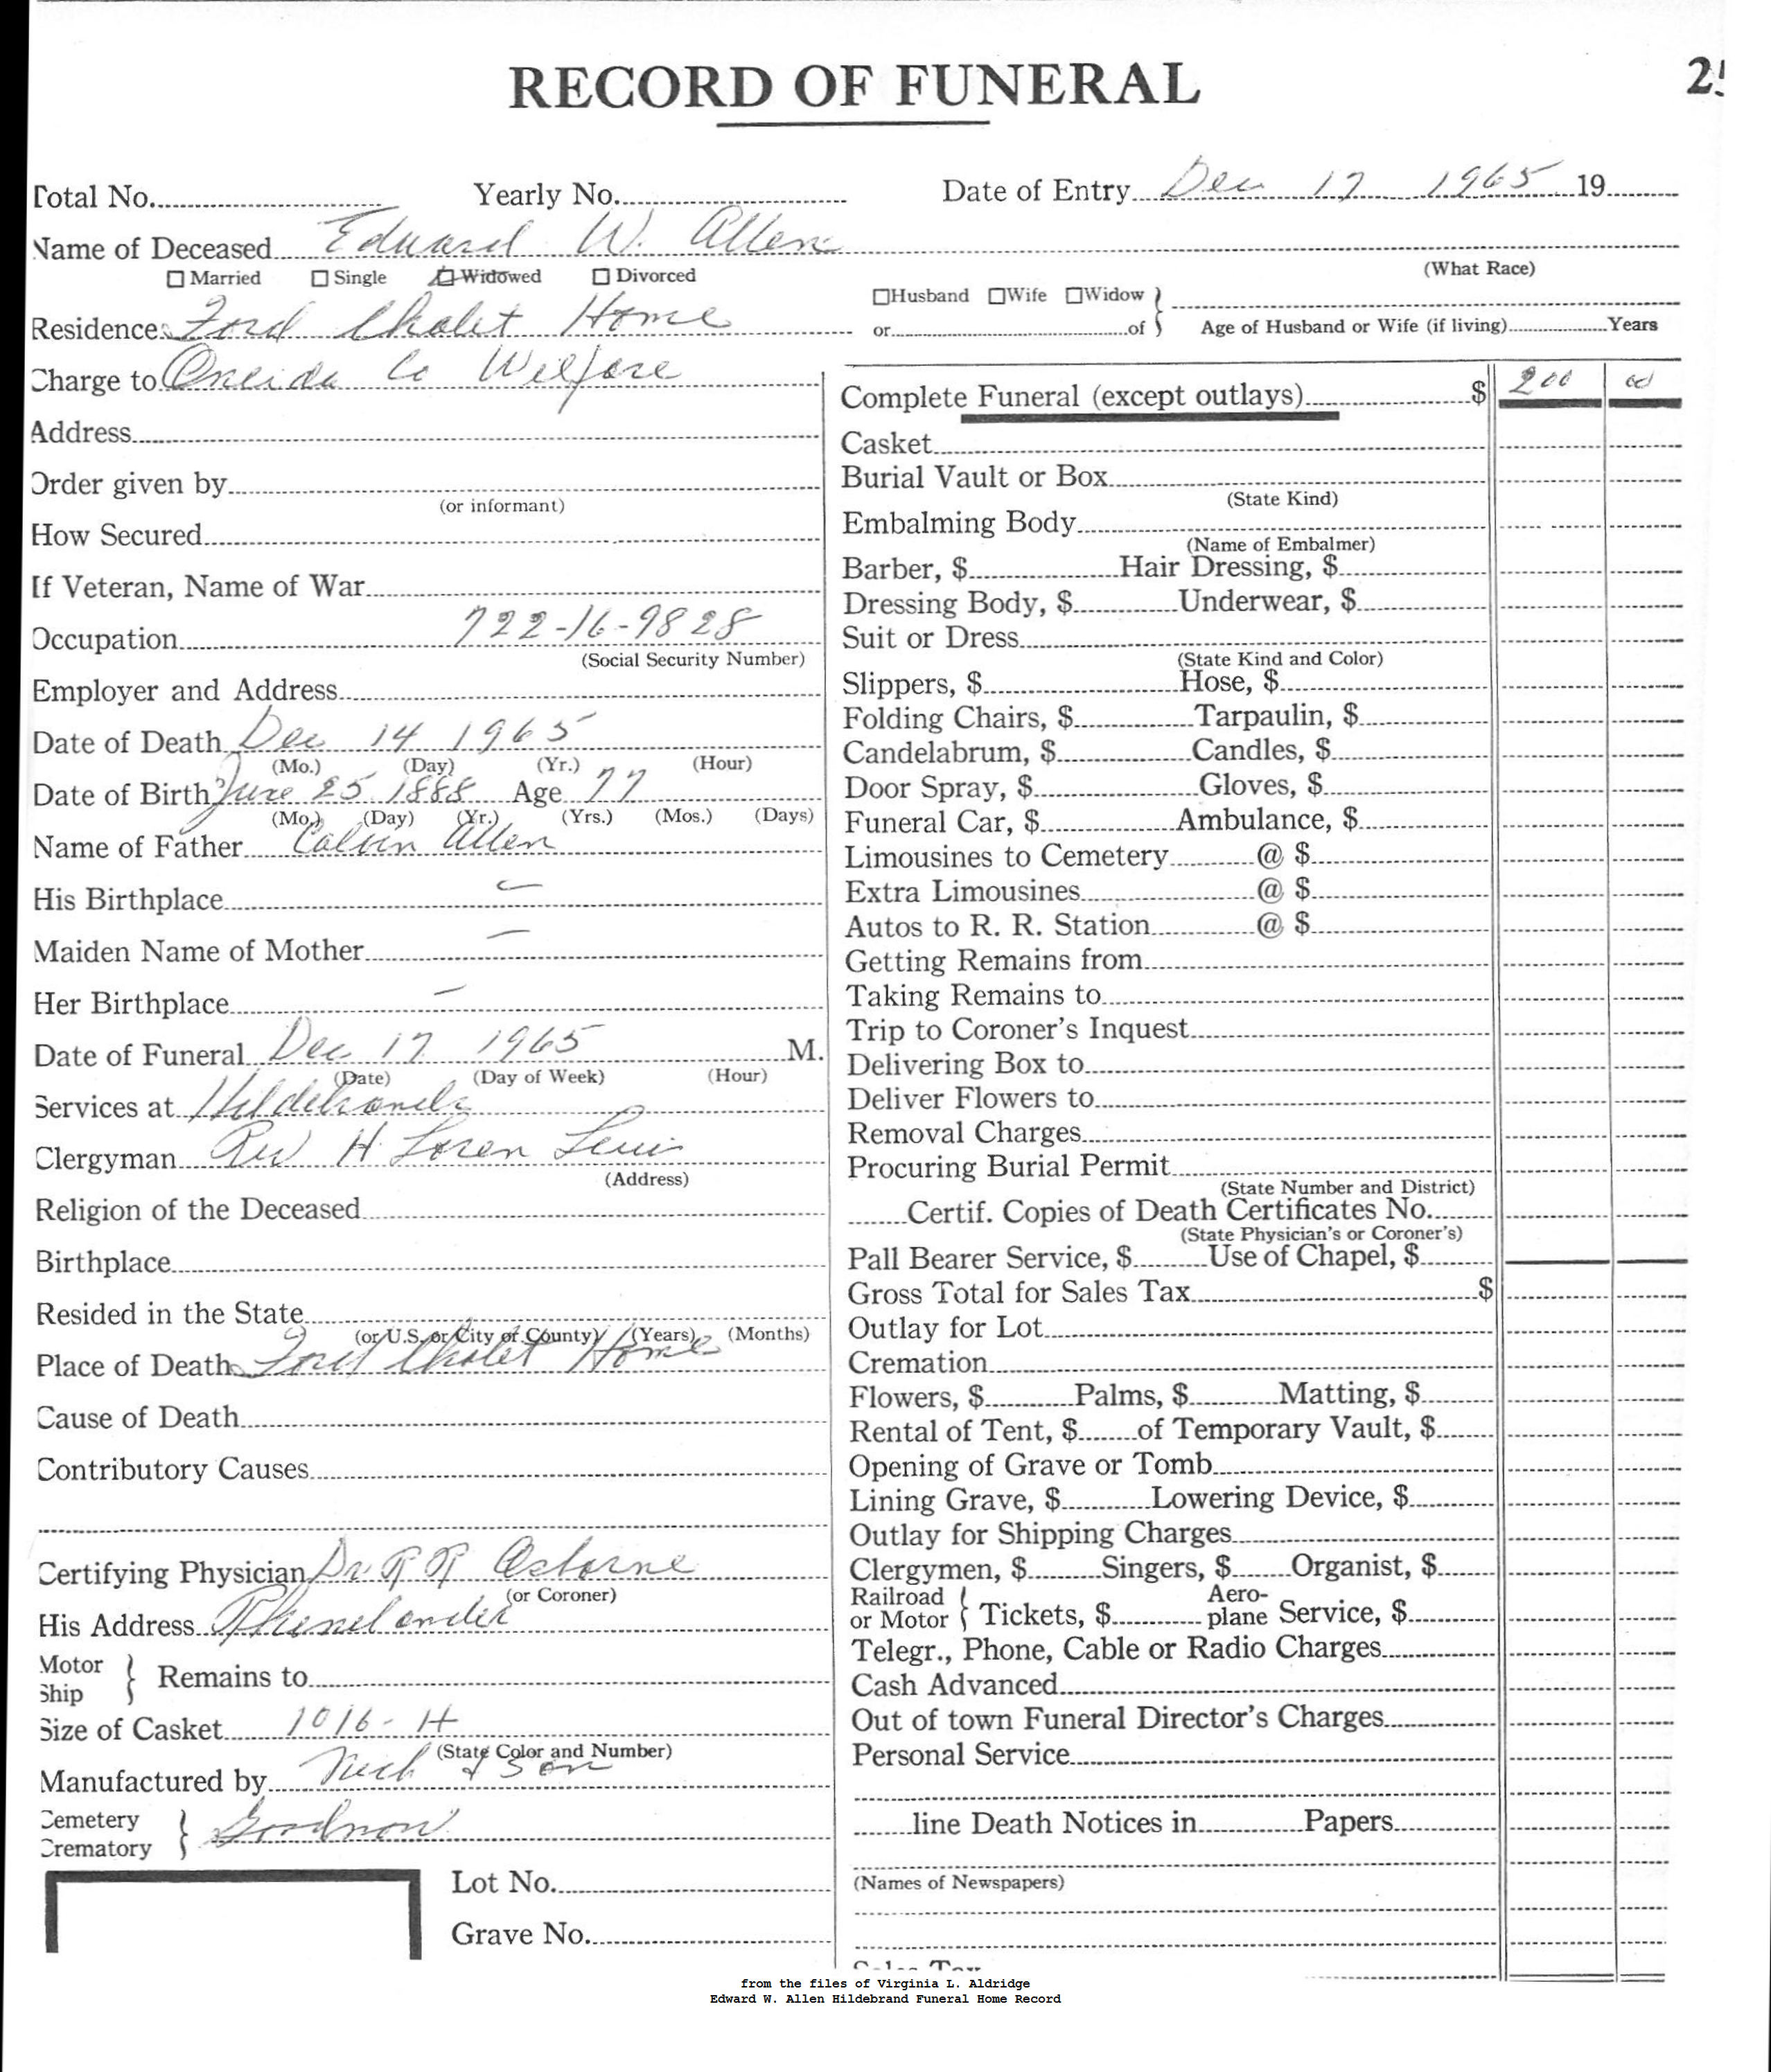 RECORD OF FUNERAL
Total No. Yearly No. Date of Entry Dec 17 1965 19
Name of Deceased Edward W. Allen
☐ Married ☐ Single ☑ Widowed ☐ Divorced (What Race)
☐Husband ☐Wife ☐Widow }
Residence Ford Chalet Home or of } Age of Husband or Wife (if living) Years
Charge to Oneida Co Welfare
Address
Order given by
(or informant)
How Secured
If Veteran, Name of War
Occupation 722-16-9828
(Social Security Number)
Employer and Address
Date of Death Dec 14 1965
(Mo.) (Day) (Yr.) (Hour)
Date of Birth June 25 1888 Age 77
(Mo.) (Day) (Yr.) (Yrs.) (Mos.) (Days)
Name of Father Calvin Allen
His Birthplace –
Maiden Name of Mother –
Her Birthplace –
Date of Funeral Dec 17 1965 M.
(Date) (Day of Week) (Hour)
Services at Hildebrands
Clergyman Rev H. Loren Lewis
(Address)
Religion of the Deceased
Birthplace
Resided in the State
(or U.S. or City or County) (Years) (Months)
Place of Death Ford Chalet Home
Cause of Death
Contributory Causes
Certifying Physician Dr. R R Osborne
(or Coroner)
His Address Rhinelander
Motor
Ship } Remains to
Size of Casket 1016-H
(State Color and Number)
Manufactured by & Son
Cemetery
Crematory } Goodnow
Lot No.
Grave No.
Complete Funeral (except outlays) $ 200 00
Casket
Burial Vault or Box
(State Kind)
Embalming Body
(Name of Embalmer)
Barber, $ Hair Dressing, $
Dressing Body, $ Underwear, $
Suit or Dress
(State Kind and Color)
Slippers, $ Hose, $
Folding Chairs, $ Tarpaulin, $
Candelabrum, $ Candles, $
Door Spray, $ Gloves, $
Funeral Car, $ Ambulance, $
Limousines to Cemetery @ $
Extra Limousines @ $
Autos to R. R. Station @ $
Getting Remains from
Taking Remains to
Trip to Coroner's Inquest
Delivering Box to
Deliver Flowers to
Removal Charges
Procuring Burial Permit
(State Number and District)
Certif. Copies of Death Certificates No.
(State Physician's or Coroner's)
Pall Bearer Service, $ Use of Chapel, $
Gross Total for Sales Tax $
Outlay for Lot
Cremation
Flowers, $ Palms, $ Matting, $
Rental of Tent, $ of Temporary Vault, $
Opening of Grave or Tomb
Lining Grave, $ Lowering Device, $
Outlay for Shipping Charges
Clergymen, $ Singers, $ Organist, $
Railroad Aero-
or Motor { Tickets, $ plane Service, $
Telegr., Phone, Cable or Radio Charges
Cash Advanced
Out of town Funeral Director's Charges
Personal Service
line Death Notices in Papers
(Names of Newspapers)
Sales Tax
from the files of Virginia L. Aldridge
Edward W. Allen Hildebrand Funeral Home Record